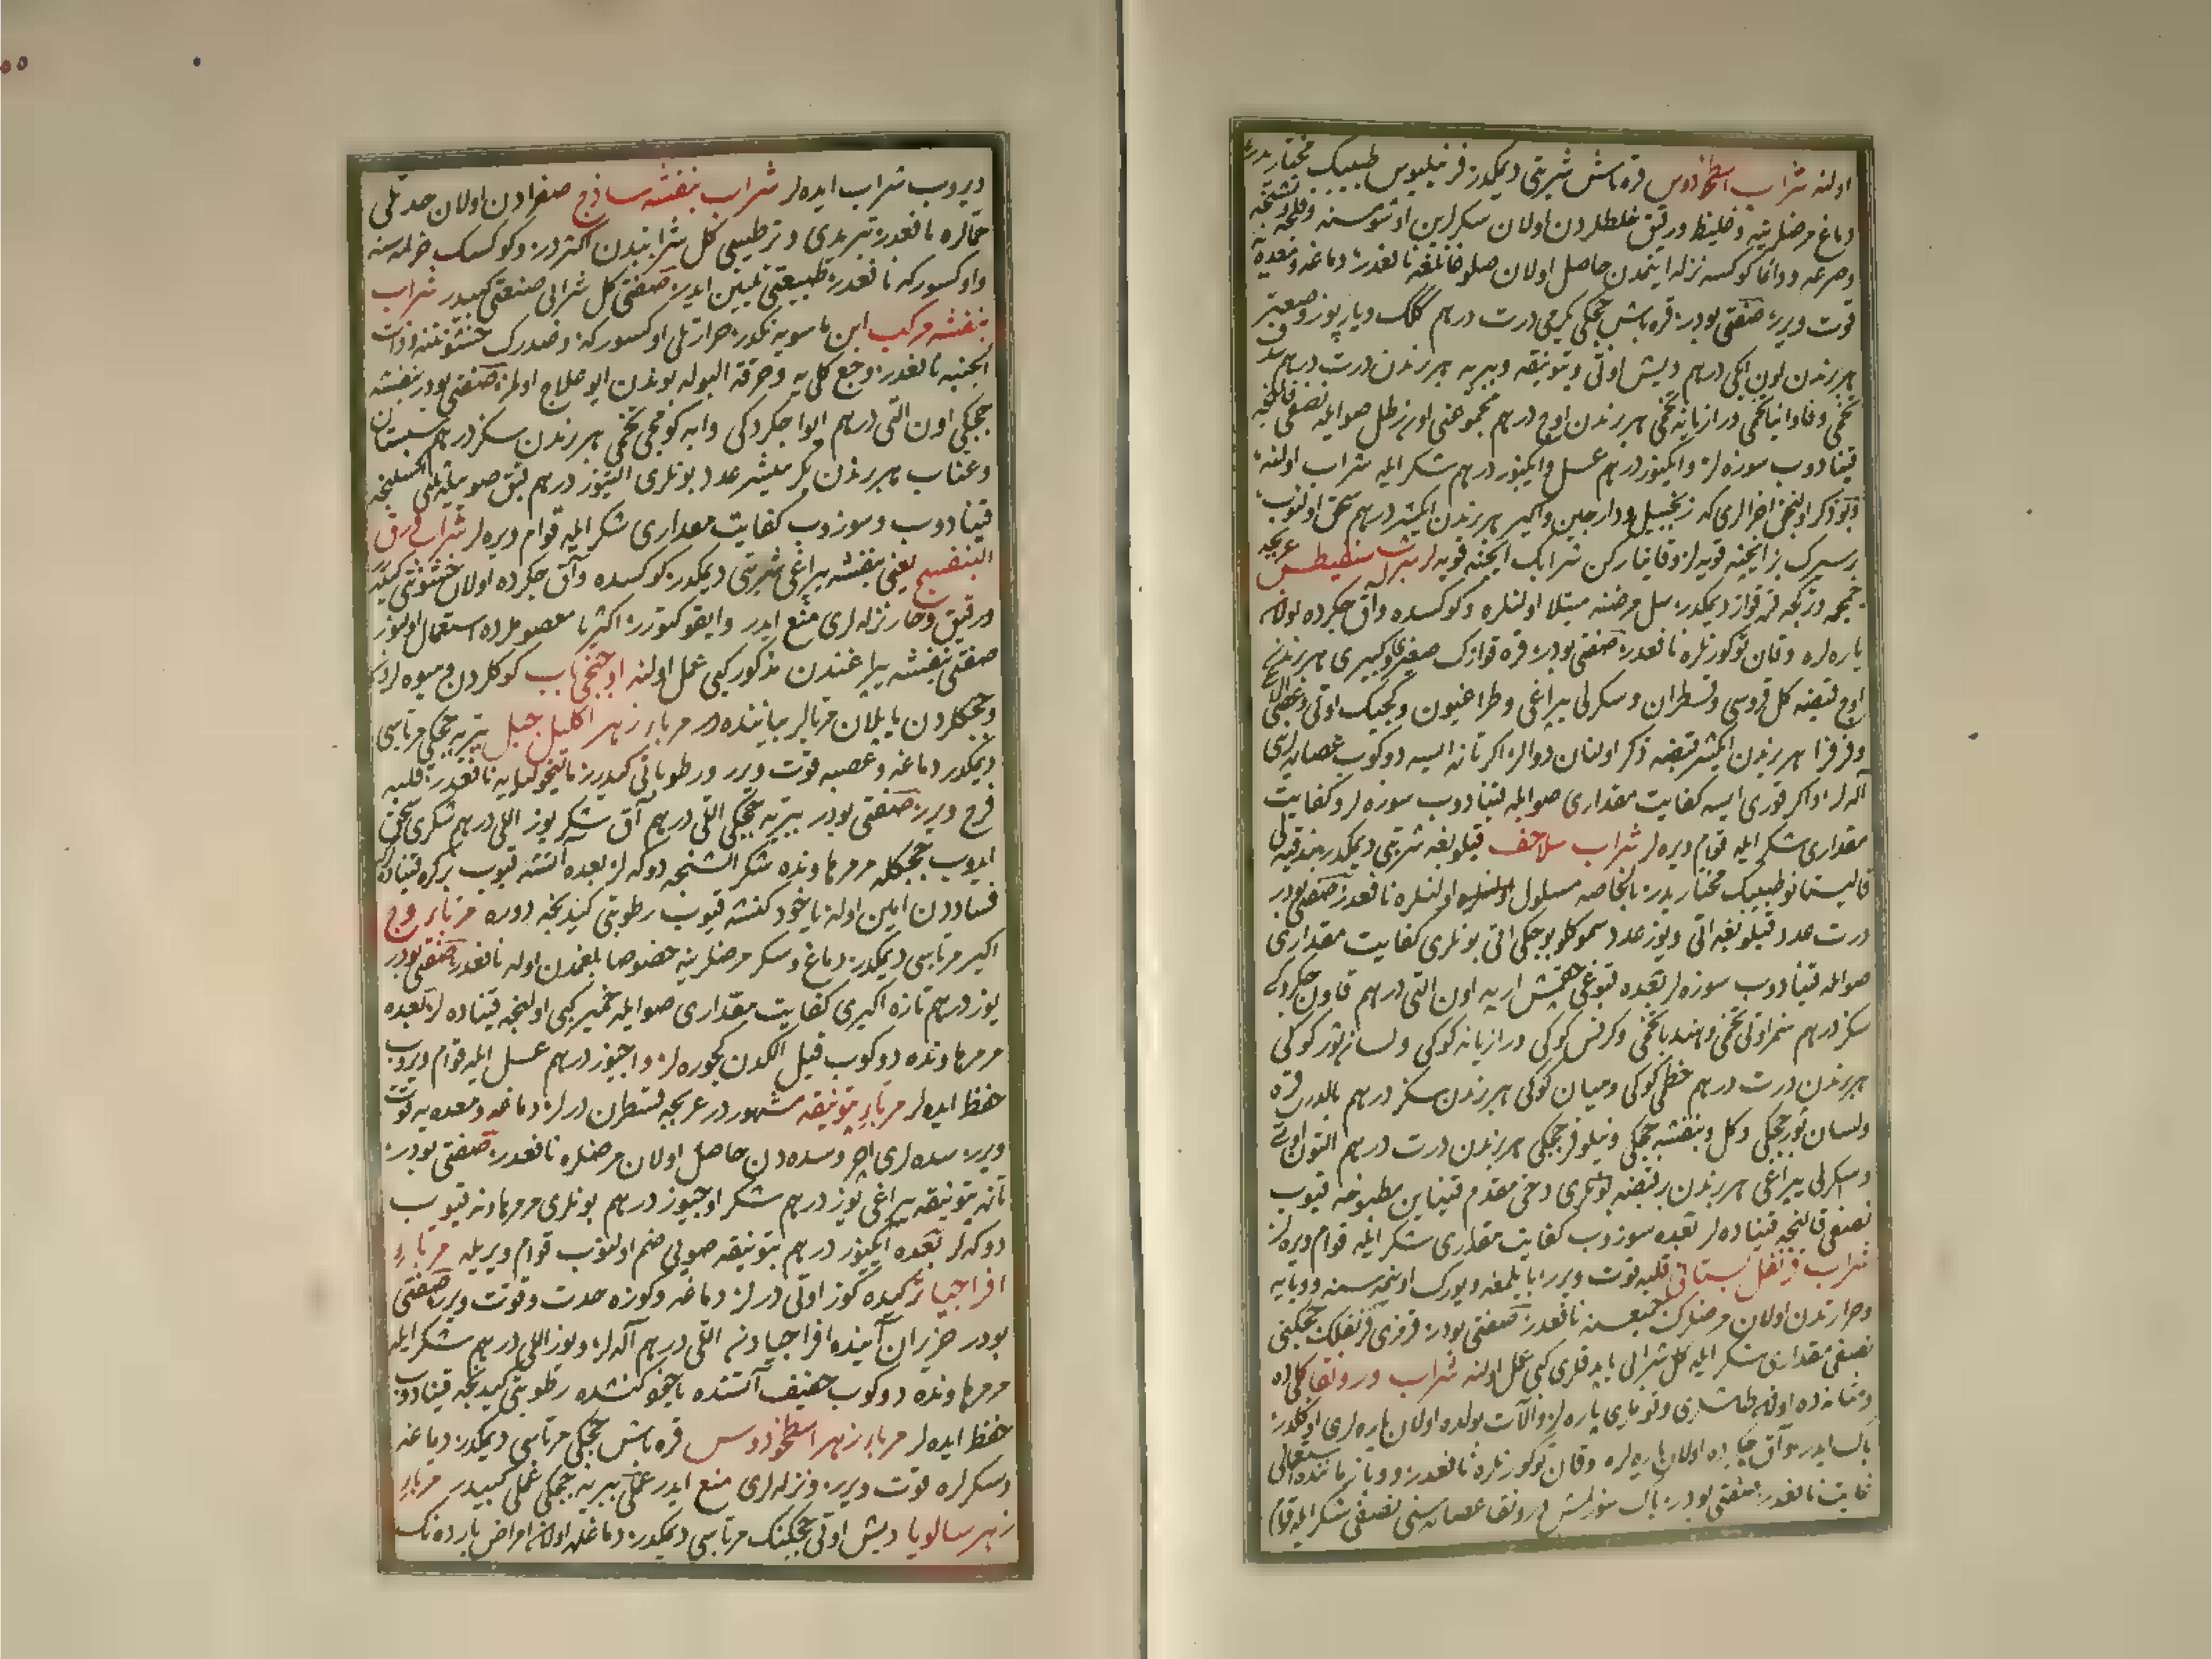 اولنه شراب اسطوخودوس قره باش شربتی دیمکدر فرنیلیوس طبیبک مختاریدر
دماغ مرضلرینه و غلیظ و رقیق خلطلردن اولان سکرلرین اوشومسنه
وصرعه و دائما کوکسه نزله اینمدن حاصل اولان صلوغانلغه نافعدر دماغه و معدیه
قوت ویرر صنعتی بودر قره باش چچکی یکرمی درت درهم ککک و یارپوز و صعتر
هر برندن اون ایکی درهم دیش اوتی و بتونیقه و بیریه هر برندن درت درهم
تخمی و فاوانیا تخمی و رازیانه تخمی هر برندن اوچ درهم مجموعنی اون رطل صو ایله نصفی قالنجه
قینادوب سوزه لر و ایکیوز درهم عسل و ایکیوز درهم شکر ایله شراب اولنه
زنجبیل و دارچین و اکیر هر برندن ایکیشر درهم سحق اولنوب
بر سیرک بز ایچینه قویه لر و قاینارکن شرابک ایچنه قویه لر
دیمکدر سل مرضنه مبتلا اولنلره و کوکسده و آق جکرده اولان
یاره لره و قان توکورنلره نافعدر صنعتی بودر قره قوازک صغیری و کبیری هر برندن
اوچ قبضه کل قروسی و قنطران و سکرلی یپراغی و طراغیون و کچیک اوتی
و فرفرا هر برندن ایکیشر قبضه ذکر اولنان دوالر اکر تازه ایسه دوکوب عصاره لرینی
آله لر و اکر قوری ایسه کفایت مقداری صو ایله قینادوب سوزه لر و کفایت
مقداری شکر ایله قوام ویره لر شراب سلاحف قپلوبغه شربتی دیمکدر
طبیبک مختاریدر بالخاصه مسلول اولنلره نافعدر صنعتی بودر
درت عدد قپلوبغه اتی و یوز عدد سموکلو بوجکی اتی بونلری کفایت مقداری
صو ایله قینادوب سوزه لر بعده قبوغی چقمش ارپه اون التی درهم قاون چکردکی
سکز درهم تخمی و هندبا تخمی و کرفس کوکی و رازیانه کوکی و لسان ثور کوکی
هر برندن درت درهم خطمی کوکی و میان کوکی هر برندن سکز درهم بالدری قره
و لسان ثور چچکی و کل و بنفشه چچکی و نیلوفر چچکی هر برندن درت درهم التون اوتی
و سکرلی یپراغی هر برندن بر قبضه بونلری دخی مقدم قینایان مطبوخه قیوب
نصفی قالنجه قیناده لر بعده سوزوب کفایت مقداری شکر ایله قوام ویره لر
شراب قرنفل بستانی قلبه قوت ویرر بایلمغه و یورک اوینمه سنه و وبایه
و حرارتدن اولان مرضلرک جمیعسنه نافعدر صنعتی بودر قرمزی قرنفلک چچکینی
نصفی مقداری شکر ایله کل شرابی کبی عمل اولنه شراب ورونقا کلیه ده
و مثانه ده اولان طاشلری و قومری پاره لر و آلات بولده اولان یاره لری اوکلدر
پاک ایدر و آق جکرده اولان یاره لره و قان توکورنلره نافعدر و وبا زماننده
غایت نافعدر صنعتی بودر پاک سوزلمش ورونقا عصاره سنی نصفی شکر ایله قوام
ویروب شراب ایده لر شراب بنفشه ساذج صفرادن اولان حدتلی
حمالره نافعدر تبریدی و ترطیبی کل شرابندن اکثردر و کوکسک خراسنه
و اوکسورکه نافعدر طبیعتی تلیین ایدر صنعتی کل شرابی صنعتی کبیدر شراب
بنفشه مرکب ابن ماسویه نکدر حرارتلی اوکسورکه و صدرک خشونتنه و ذات
الجنبه نافعدر وجع کلیه و حرقة البوله بوندن ایو علاج اولمز صنعتی بودر بنفشه
چچکی اون التی درهم ایوا چکردکی و ابه کومجی تخمی هر برندن سکز درهم سبستان
و عناب هر برندن یکرمیشر عدد بونلری التیوز درهم صو ایله
قینادوب و سوزوب کفایت مقداری شکر ایله قوام ویره لر شراب ورق
البنفسج یعنی بنفشه یپراغی شربتی دیمکدر کوکسده و آق جکرده اولان خشونتی کیدرر
و رقیق و حار نزله لری منع ایدر و ایقو کتورر اکثریا معصوملرده استعمال اولنور
صنعتی بنفشه یپراغندن مذکور کبی عمل اولنه اوچنجی باب کوکلردن و میوه لردن
و چچکلردن یاپیلان مربالر بیاننده در مرباء زهر اکلیل جبل بیریه چچکی مرباسی
دیمکدر دماغه و عصبه قوت ویرر و رطوباتی کیدرر مالیخولیایه نافعدر قلبه
فرح ویرر صنعتی بودر بیریه چچکی اللی درهم آق شکر یوز اللی درهم شکری سحق
ایدوب چچکله مرمر هاونده شکر الشنجه دوکه لر بعده آتشه قیوب بر کره قیناده لر
فساددن امین اوله یاخود کنشه قیوب رطوبتی کیدنجه دوره مرباء وج
اکیر مرباسی دیمکدر دماغ و سکر مرضلرینه خصوصا بلغمدن اوله نافعدر صنعتی بودر
یوز درهم تازه اکیری کفایت مقداری صو ایله خمیر کبی اولنجه قیناده لر بعده
مرمر هاونده دوکوب قیل الکدن کچوره لر و اوچیوز درهم عسل ایله قوام ویروب
حفظ ایده لر مرباء بتونیقه مشهوردر عربجه قسطرن درلر دماغه و معده یه قوت
ویرر سده لری اچر و سده دن حاصل اولان مرضلره نافعدر صنعتی بودر
تازه بتونیقه یپراغی یوز درهم شکر اوچیوز درهم بونلری مرمر هاونه قیوب
دوکه لر بعده ایکیوز درهم بتونیقه صویی ضم اولنوب قوام ویریله مرباء
افراجیا ترکیده کوز اوتی درلر دماغه و کوزه حدت و قوت ویرر صنعتی
بودر حزیران آینده افراجیادن اللی درهم آله لر و یوز اللی درهم شکر ایله
مرمر هاونده دوکوب خفیف آتشده یاخود کنشده رطوبتی کیدنجه قینادوب
حفظ ایده لر مرباء زهر اسطوخودوس قره باش چچکی مرباسی دیمکدر دماغه
و سکرلره قوت ویرر و نزله لری منع ایدر عملی بیریه چچکی عملی کبیدر مرباء
زهر سالویا دیش اوتی چچکینک مرباسی دیمکدر دماغده اولان امراض بارده نک